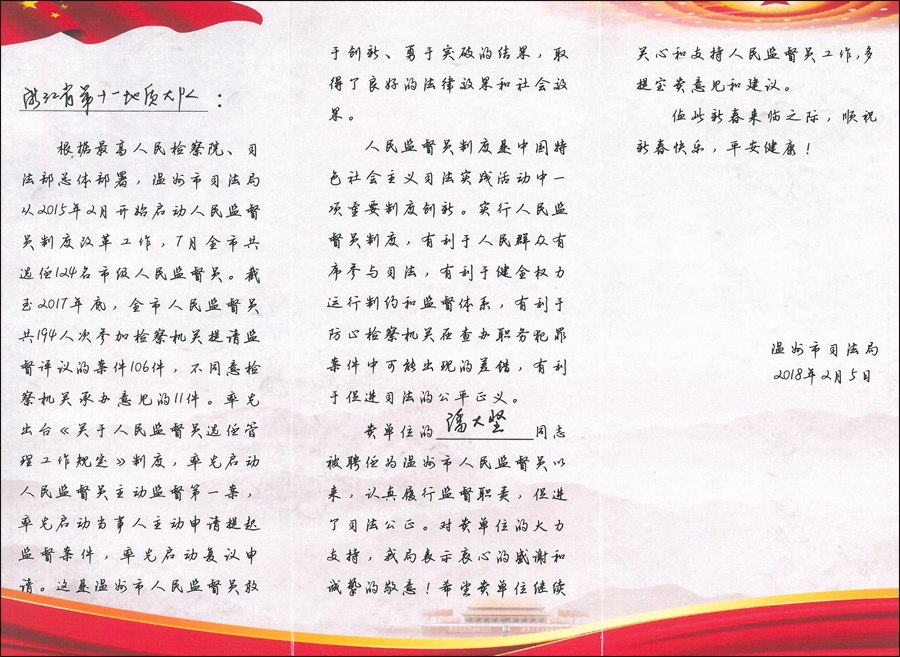 浙江省第十一地质大队：
根据最高人民检察院、司
法部总体部署，温州市司法局
从2015年2月开始启动人民监督
员制度改革工作，7月全市共
选任124名市级人民监督员。截
至2017年底，全市人民监督员
共194人次参加检察机关提请监
督评议的案件106件，不同意检
察机关承办意见的11件。率先
出台《关于人民监督员选任管
理工作规定》制度，率先启动
人民监督员主动监督第一案，
率先启动当事人主动申请提起
监督案件，率先启动复议申
请。这是温州市人民监督员敢
于创新、勇于突破的结果，取
得了良好的法律效果和社会效
果。
人民监督员制度是中国特
色社会主义司法实践活动中一
项重要制度创新。实行人民监
督员制度，有利于人民群众有
序参与司法，有利于健全权力
运行制约和监督体系，有利于
防止检察机关在查办职务犯罪
案件中可能出现的差错，有利
于促进司法的公平正义。
贵单位的潘大坚同志
被聘任为温州市人民监督员以
来，认真履行监督职责，促进
了司法公正。对贵单位的大力
支持，我局表示衷心的感谢和
诚挚的敬意！希望贵单位继续
关心和支持人民监督员工作，多
提宝贵意见和建议。
值此新春来临之际，顺祝
新春快乐，平安健康！
温州市司法局
2018年2月5日